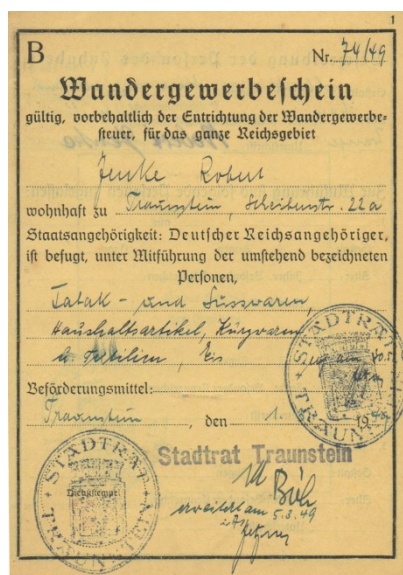 1
B Nr. 74/49
Wandergewerbeschein
gültig, vorbehaltlich der Entrichtung der Wandergewerbe-
steuer, für das ganze Reichsgebiet
Jenke Robert
wohnhaft zu Traunstein, Scheibenstr. 22a
Staatsangehörigkeit: Deutscher Reichsangehöriger,
ist befugt, unter Mitführung der umstehend bezeichneten
Personen,
Tabak- und Süsswaren,
Haushaltsartikel, Kurzwaren
Textilien, Eis
Beförderungsmittel:
Traunstein, den 1.
STADTRAT TRAUNSTEIN
Stadtrat Traunstein
STADTRAT TRAUNSTEIN
Dienststempel
erweitert am 5.3.49